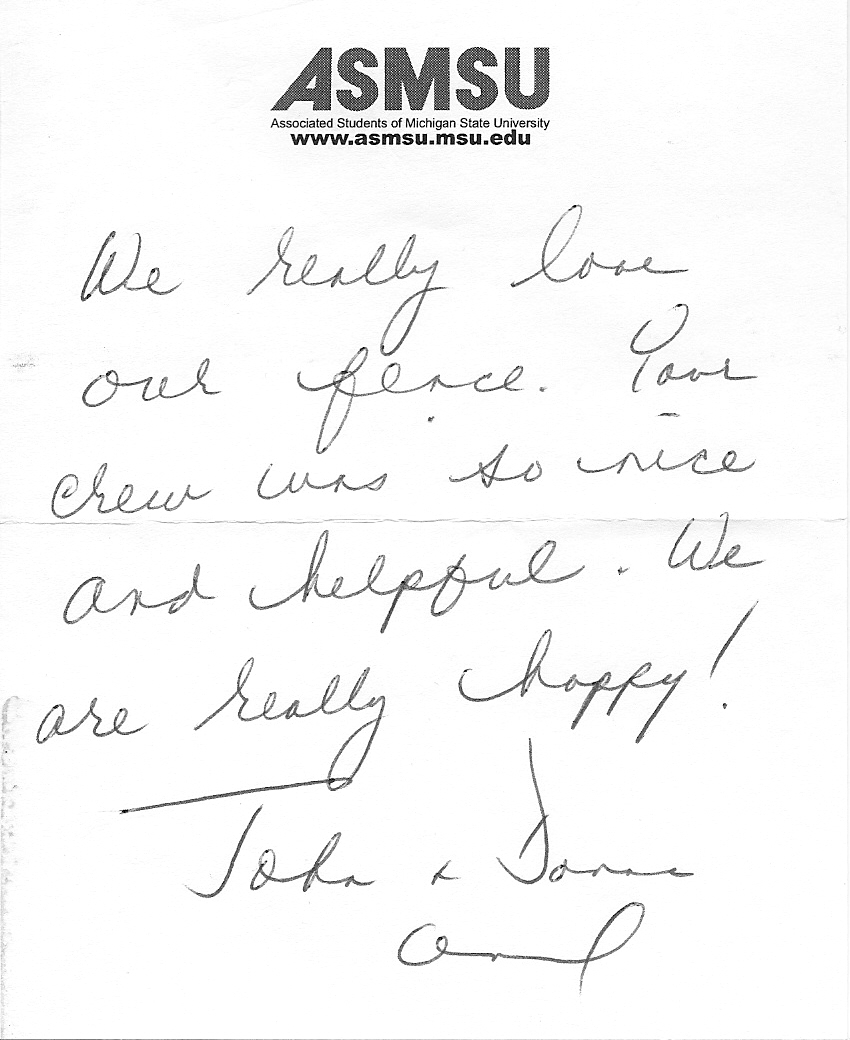 ASMSU
Associated Students of Michigan State University
www.asmsu.msu.edu
We really love
our fence. Your
crew was so nice
and helpful. We
are really happy!
John &